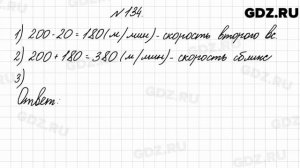 GDZ.RU
№ 134.
1) 200-20=180(м/мин)-скорость второго вс.
2) 200+180=380(м/мин)-скорость сближ
3)
Ответ:
GDZ.RU